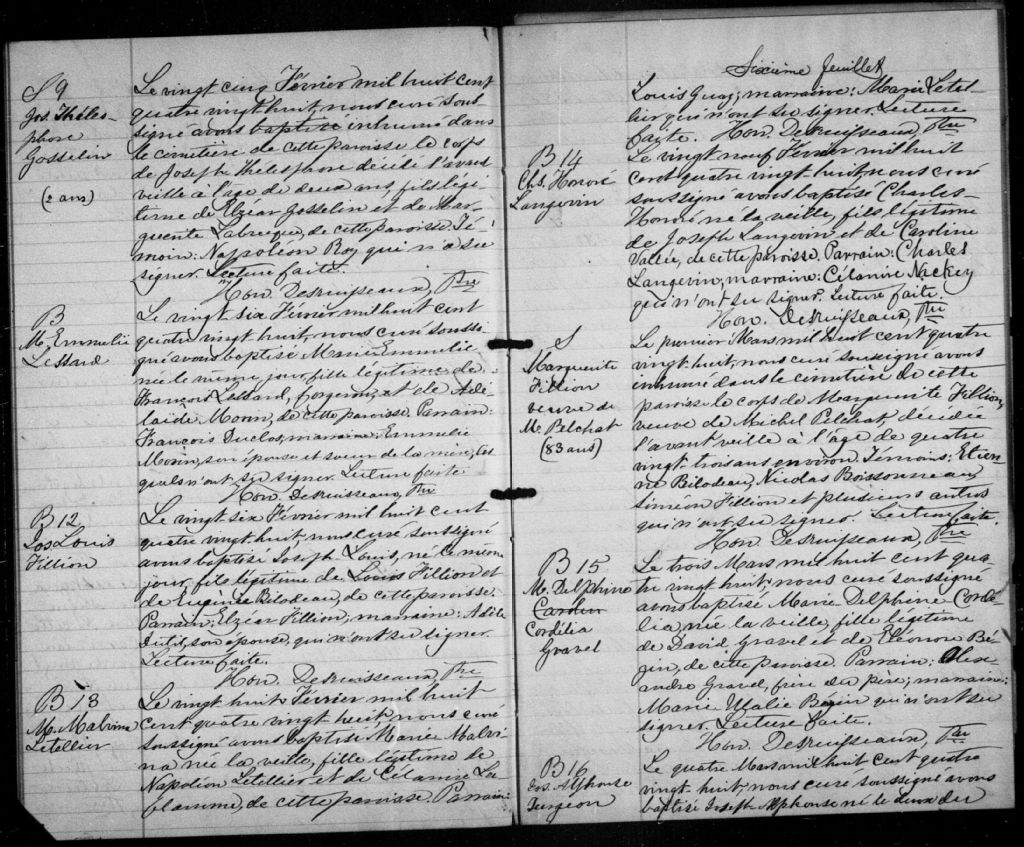 S 9
Jos. Théles-
phore
Gosselin
(2 ans)
Le vingt cinq Février mil huit cent
quatre vingt huit, nous curé sous
signé avons baptisé inhumé dans
le cimetière de cette paroisse le corps
de Joseph Thelesphore décédé l'avant
veille à l'age de deux ans, fils légi-
time de Elzéar Gosselin et de Mar-
guerite Labrecque, de cette paroisse. Té-
moin: Napoléon Roy, qui n'a su
signer. Lecture faite.
Hon. Desruisseaux, Ptre
B
M. Emmelie
Lessard
Le vingt six Février mil huit cent
quatre vingt huit, nous curé soussi-
gné avons baptisé Marie Emmelie
née le même jour, fille légitime de
François Lessard, forgeron, et de Adé-
laide Morin, de cette paroisse. Parrain:
François Duclos, marraine: Emmelie
Morin, son épouse et soeur de la mère, les
quels n'ont su signer. Lecture faite
Hon. Desruisseaux, Ptre
B 12
Jos Louis
Fillion
Le vingt six Février mil huit cent
quatre vingt huit, nous curé soussigné
avons baptisé Joseph Louis, né le même
jour, fils légitime de Louis Fillion et
de Eugénie Bilodeau, de cette paroisse.
Parrain: Elzéar Fillion; marraine: Adèle
Dutil, son épouse, qui n'ont su signer.
Lecture faite.
Hon. Desruisseaux, Ptre
B 13
M. Malvina
Letellier
Le vingt huit Février mil huit
cent quatre vingt huit, nous curé
soussigné avons baptisé Marie Malvi
na née la veille, fille légitime de
Napoléon Letellier et de Célanire La
flamme, de cette paroisse. Parrain:
Sixième feuillet
Louis Guay; marraine: Marie Letel
lier qui n'ont su signer. Lecture
faite. Hon. Desruisseaux, Ptre
B 14
Chs. Honoré
Langevin
Le vingt neuf Février mil huit
cent quatre vingt huit, nous curé
soussigné avons baptisé Charles
Honoré né la veille, fils légitime
de Joseph Langevin et de Caroline
Vallée, de cette paroisse. Parrain: Charles
Langevin; marraine: Célanire Nickey
qui n'ont su signer. Lecture faite.
Hon. Desruisseaux, Ptre
S
Marguerite
Fillion
veuve de
M. Pelchat
(83 ans)
Le premier Mars mil huit cent quatre
vingt huit, nous curé soussigné avons
inhumé dans le cimetière de cette
paroisse le corps de Marguerite Fillion,
veuve de Michel Pelchat, décédée
l'avant veille à l'âge de quatre
vingt trois ans environ. Témoins: Etien-
ne Bilodeau, Nicolas Boissonneau,
Siméon Fillion et plusieurs autres
qui n'ont su signer. Lecture faite.
Hon. Desruisseaux, Ptre
B 15
M. Delphine
Cordilia
Gravel
Le trois Mars mil huit cent qua-
tre vingt huit, nous curé soussigné
avons baptisé Marie-Delphine-Cordi-
lia, née la veille, fille légitime
de David Gravel et de Eléonore Bé-
gin, de cette paroisse. Parrain: Alex-
andre Gravel, frère du père; marraine:
Marie Malie Bégin qui n'ont su
signer. Lecture faite.
Hon. Desruisseaux, Ptre
B 16
Jos. Alphonse
Turgeon
Le quatre Mars mil huit cent quatre
vingt-huit, nous curé soussigné avons
baptisé Joseph Alphonse né le deux du